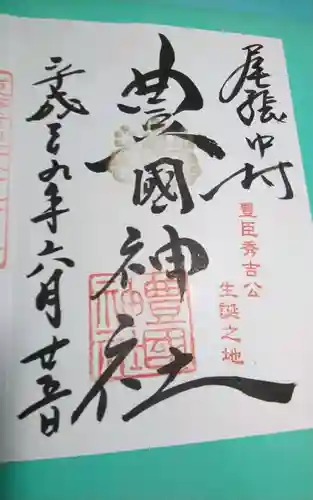 尾張中村
豊臣秀吉公
生誕之地
豊國神社
平成二九年六月廿五日